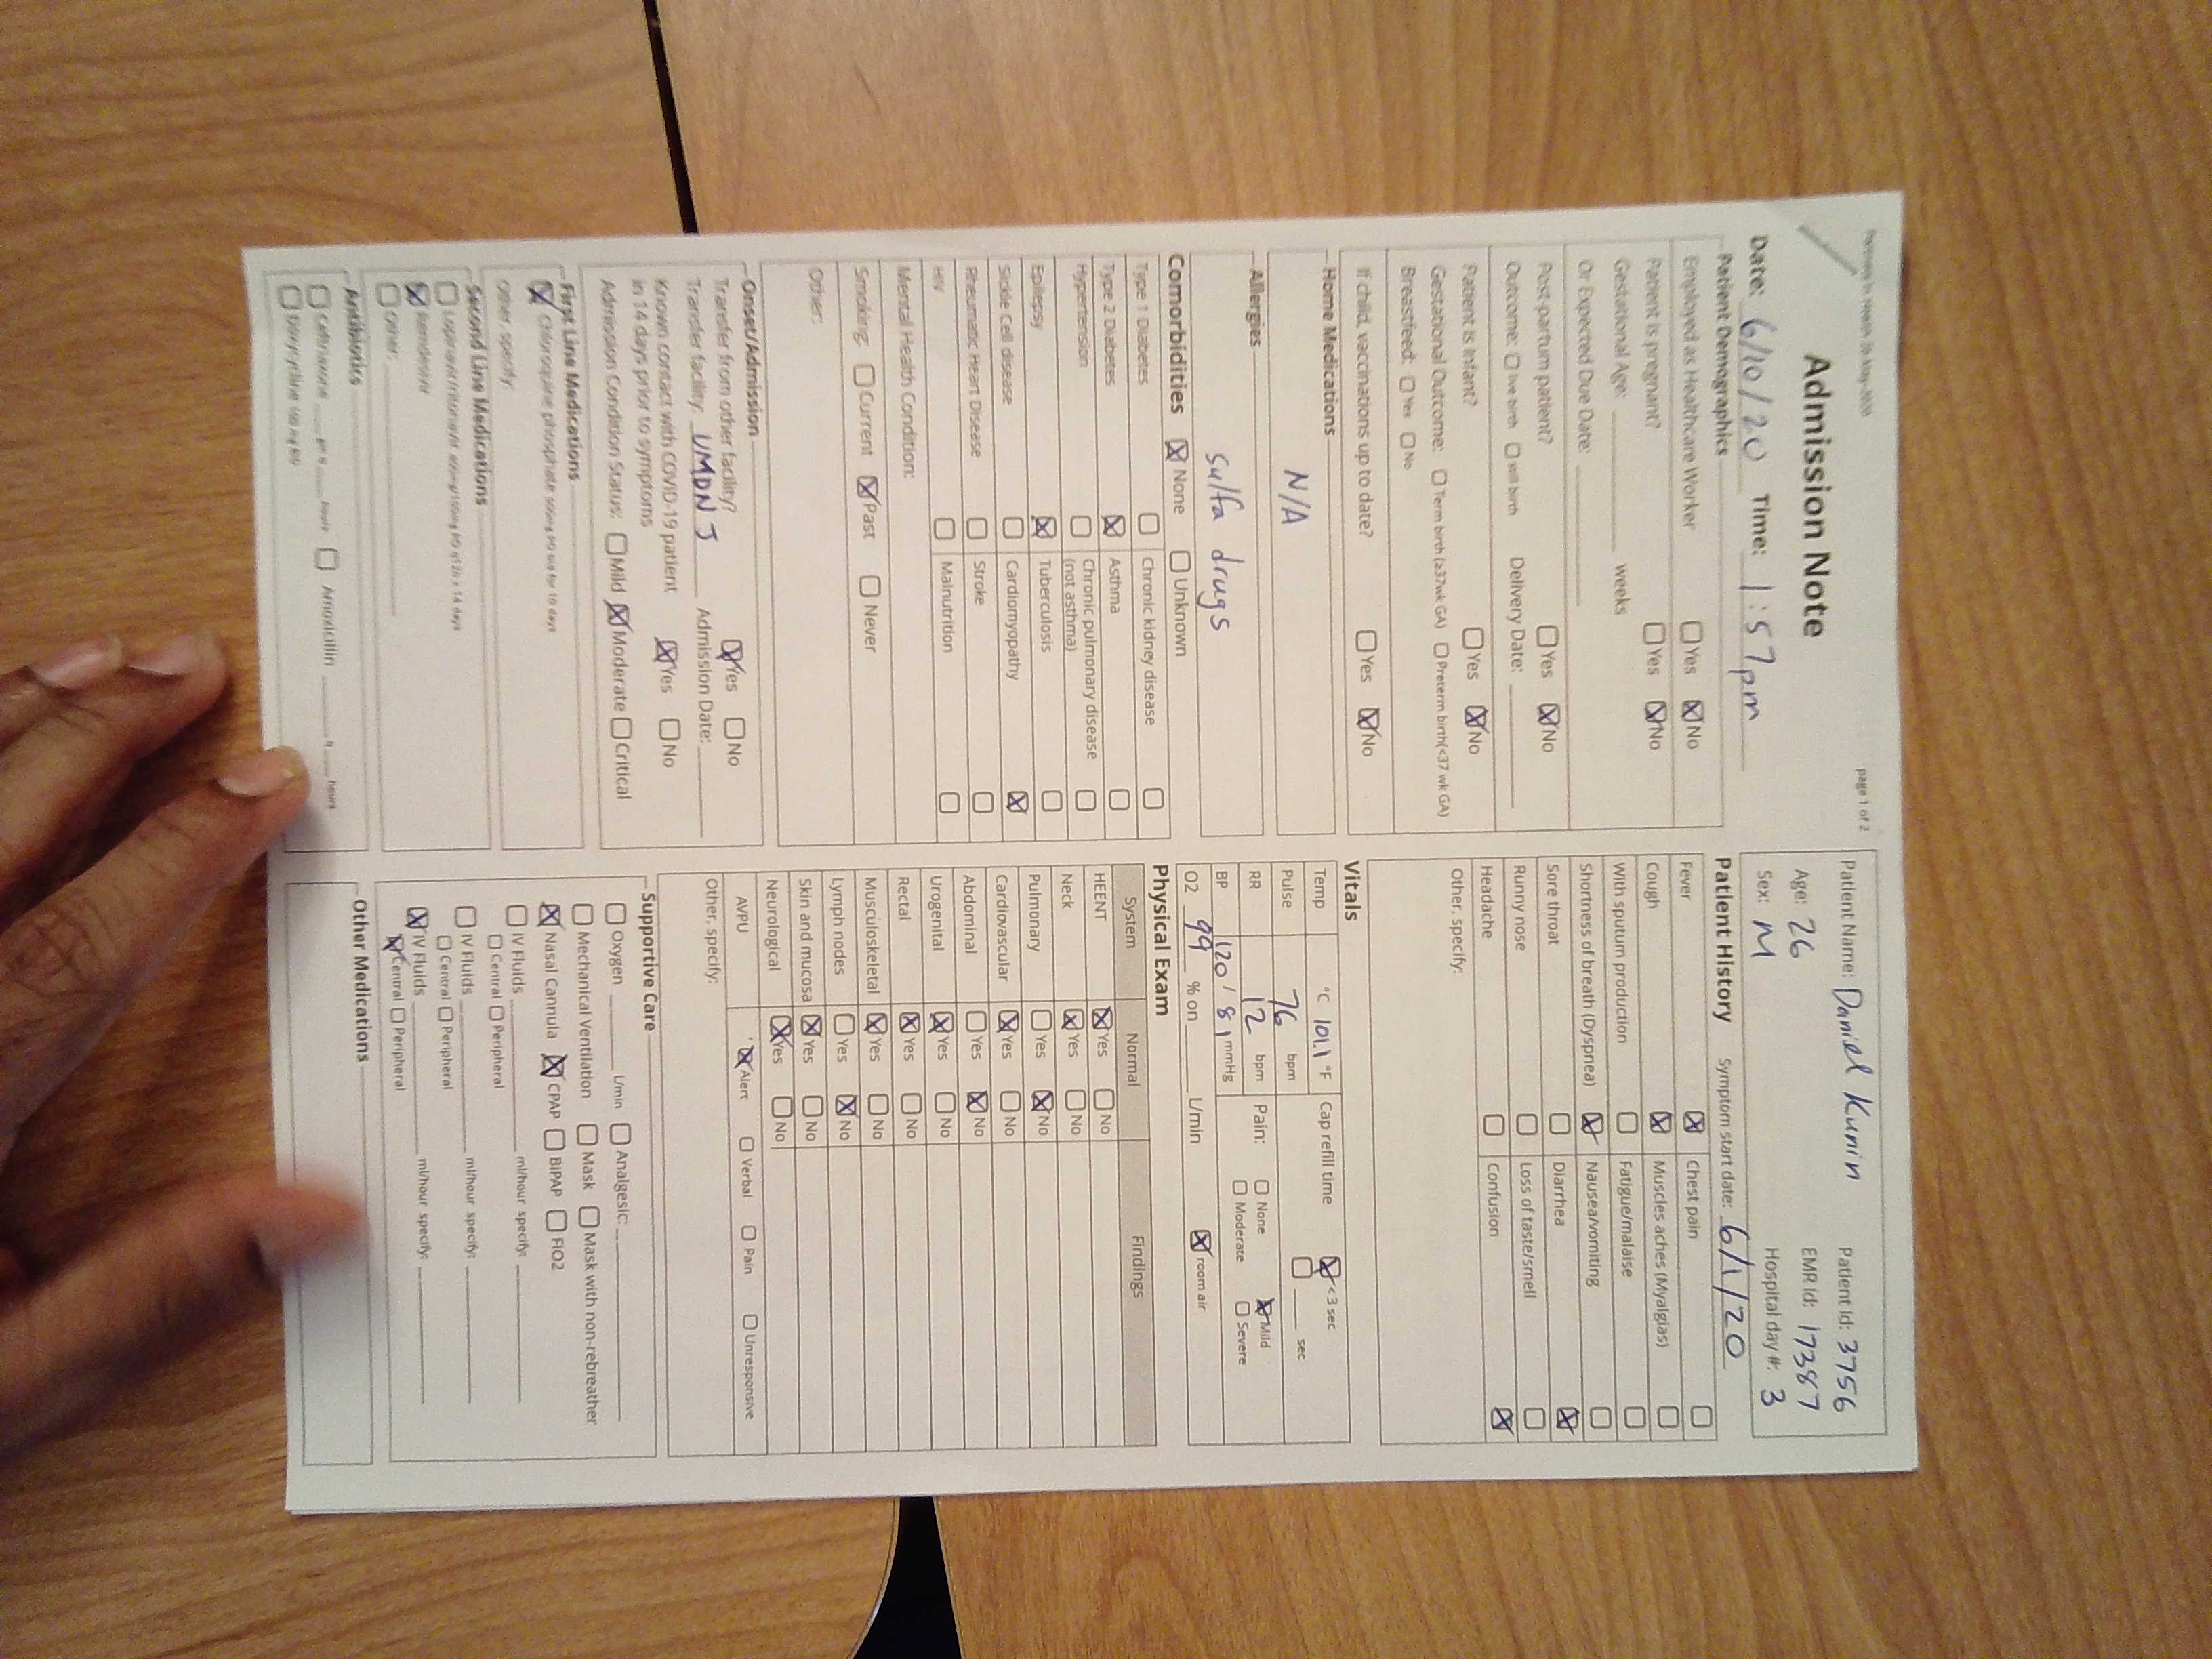 Partners In Health 20-May-2020
page 1 of 2
Admission Note
Date: 6/10/20 Time: 1:57pm
Patient Demographics
Employed as Healthcare Worker ☐ Yes ☒ No
Patient is pregnant? ☐ Yes ☒ No
Gestational Age: ____ weeks
Or Expected Due Date: ____
Post-partum patient? ☐ Yes ☒ No
Outcome: ☐ live birth ☐ still birth Delivery Date: ____
Patient is Infant? ☐ Yes ☒ No
Gestational Outcome: ☐ Term birth (≥37wk GA) ☐ Preterm birth(<37 wk GA)
Breastfeed: ☐ Yes ☐ No
If child, vaccinations up to date? ☐ Yes ☒ No
Home Medications
N/A
Allergies
sulfa drugs
Comorbidities ☒ None ☐ Unknown
Type 1 Diabetes ☐ Chronic kidney disease ☐
Type 2 Diabetes ☒ Asthma ☐
Hypertension ☐ Chronic pulmonary disease (not asthma) ☐
Epilepsy ☒ Tuberculosis ☐
Sickle Cell disease ☐ Cardiomyopathy ☒
Rheumatic Heart Disease ☐ Stroke ☐
HIV ☐ Malnutrition ☐
Mental Health Condition:
Smoking: ☐ Current ☒ Past ☐ Never
Other:
Onset/Admission
Transfer from other facility? ☒ Yes ☐ No
Transfer facility: UMDNJ Admission Date: ____
Known contact with COVID-19 patient
in 14 days prior to symptoms ☒ Yes ☐ No
Admission Condition Status: ☐ Mild ☒ Moderate ☐ Critical
First Line Medications
☒ Chloroquine phosphate 500mg PO bid for 10 days
Other, specify:
Second Line Medications
☐ Lopinavir/ritonavir 400mg/100mg PO q12h x 14 days
☒ Remdesivir
☐ Other: ____
Antibiotics
☐ Ceftriaxone ____ gm q ____ hours ☐ Amoxicillin ____ q ____ hours
☐ Doxycycline 100 mg BID
Patient Name: Daniel Kunin Patient Id: 3756
Age: 26 EMR Id: 17387
Sex: M Hospital day #: 3
Patient History Symptom start date: 6/1/20
Fever ☒ Chest pain ☐
Cough ☒ Muscles aches (Myalgias) ☐
With sputum production ☐ Fatigue/malaise ☐
Shortness of breath (Dyspnea) ☒ Nausea/vomiting ☐
Sore throat ☐ Diarrhea ☒
Runny nose ☐ Loss of taste/smell ☐
Headache ☐ Confusion ☒
Other, specify:
Vitals
Temp °C 101.1 °F Cap refill time ☒ <3 sec
Pulse 76 bpm ☐ ____ sec
RR 12 bpm Pain: ☐ None ☒ Mild
BP 120 / 81 mmHg ☐ Moderate ☐ Severe
O2 99 % on ____ L/min ☒ room air
Physical Exam
System Normal Findings
HEENT ☒ Yes ☐ No
Neck ☒ Yes ☐ No
Pulmonary ☐ Yes ☒ No
Cardiovascular ☒ Yes ☐ No
Abdominal ☐ Yes ☒ No
Urogenital ☒ Yes ☐ No
Rectal ☒ Yes ☐ No
Musculoskeletal ☒ Yes ☐ No
Lymph nodes ☐ Yes ☒ No
Skin and mucosa ☒ Yes ☐ No
Neurological ☒ Yes ☐ No
AVPU ☒ Alert ☐ Verbal ☐ Pain ☐ Unresponsive
Other, specify:
Supportive Care
☐ Oxygen ____ L/min ☐ Analgesic: ____
☐ Mechanical Ventilation ☐ Mask ☐ Mask with non-rebreather
☒ Nasal Cannula ☒ CPAP ☐ BiPAP ☐ FiO2
☐ IV Fluids ____ ml/hour specify: ____
☐ Central ☐ Peripheral
☐ IV Fluids ____ ml/hour specify: ____
☐ Central ☐ Peripheral
☒ IV Fluids ____ ml/hour specify: ____
☒ Central ☐ Peripheral
Other Medications